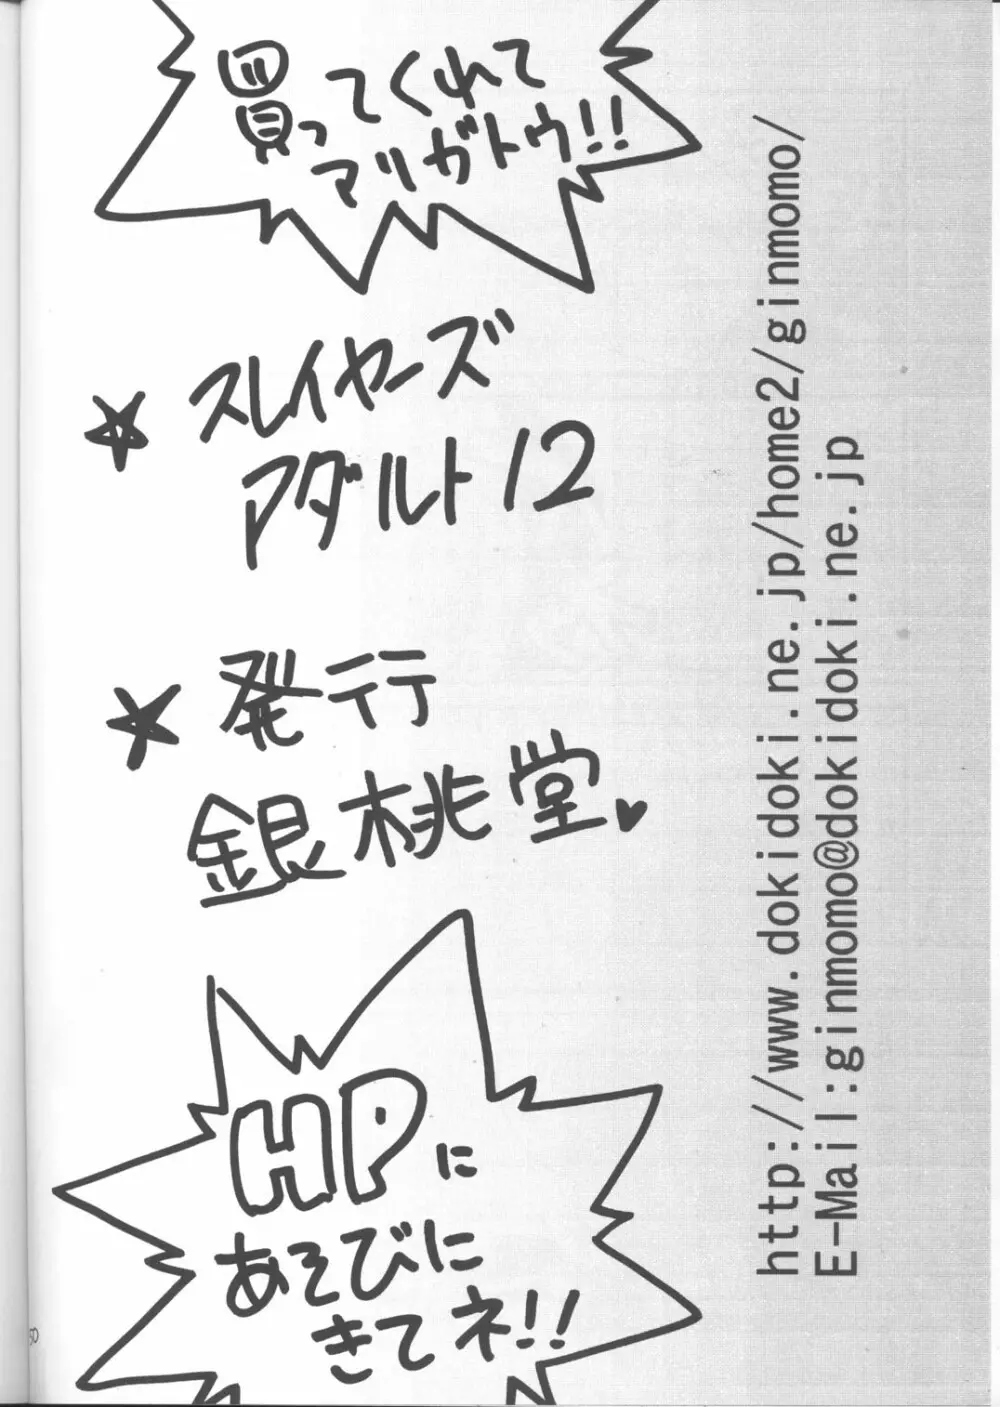 買ってくれて
アリガトウ!!
☆ スレイヤーズ
アダルト12
★ 発行
銀桃堂♥
HPに
あそびに
きてネ!!
http://www.dokidoki.ne.jp/home2/ginmomo/
E-Mail:ginmomo@dokidoki.ne.jp
50